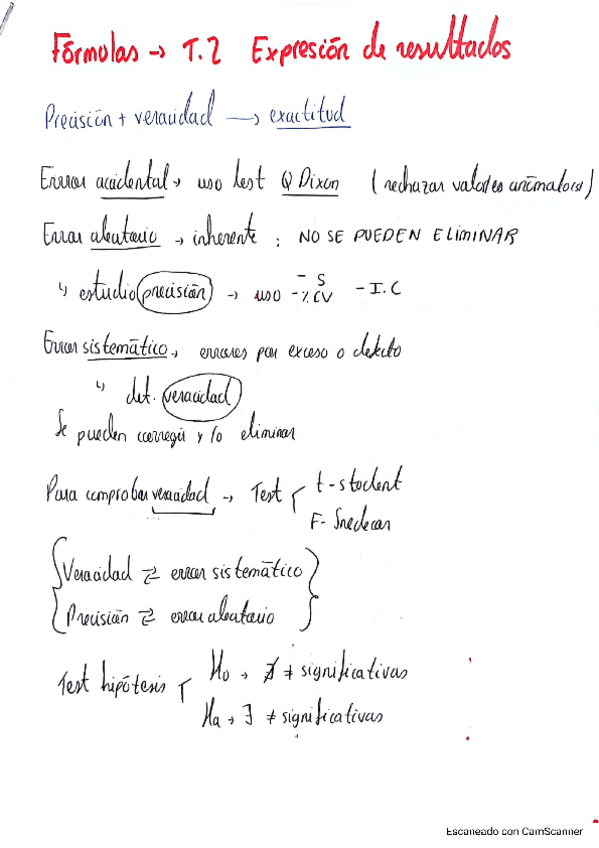 Fórmulas → T.2 Expresión de resultados
Precisión + veracidad → exactitud
Error accidental → uso test Q Dixon (rechazar valores anómalos)
Error aleatorio → inherente ; NO SE PUEDEN ELIMINAR
↳ estudio precisión → uso - S - % CV - I.C
Error sistemático → errores por exceso o defecto
↳ det. veracidad
Se pueden corregir y/o eliminar
Para comprobar veracidad → Test t-student
F- Snedecor
Veracidad ⇄ error sistemático
Precisión ⇄ error aleatorio
Test hipótesis H0 → ∄ ≠ significativas
Ha → ∃ ≠ significativas
Escaneado con CamScanner